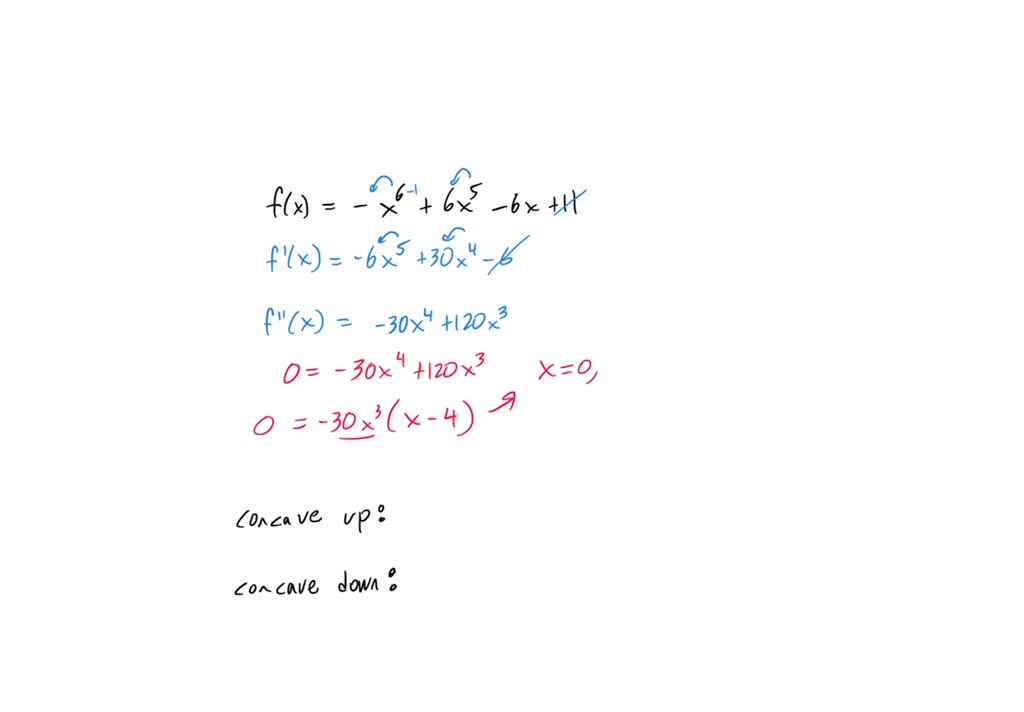 f(x) = -x⁶⁻¹ + 6x⁵ - 6x + 11
f'(x) = -6x⁵ + 30x⁴ - 6
f''(x) = -30x⁴ + 120x³
0 = -30x⁴ + 120x³ x = 0,
0 = -30x³(x - 4)
concave up:
concave down: